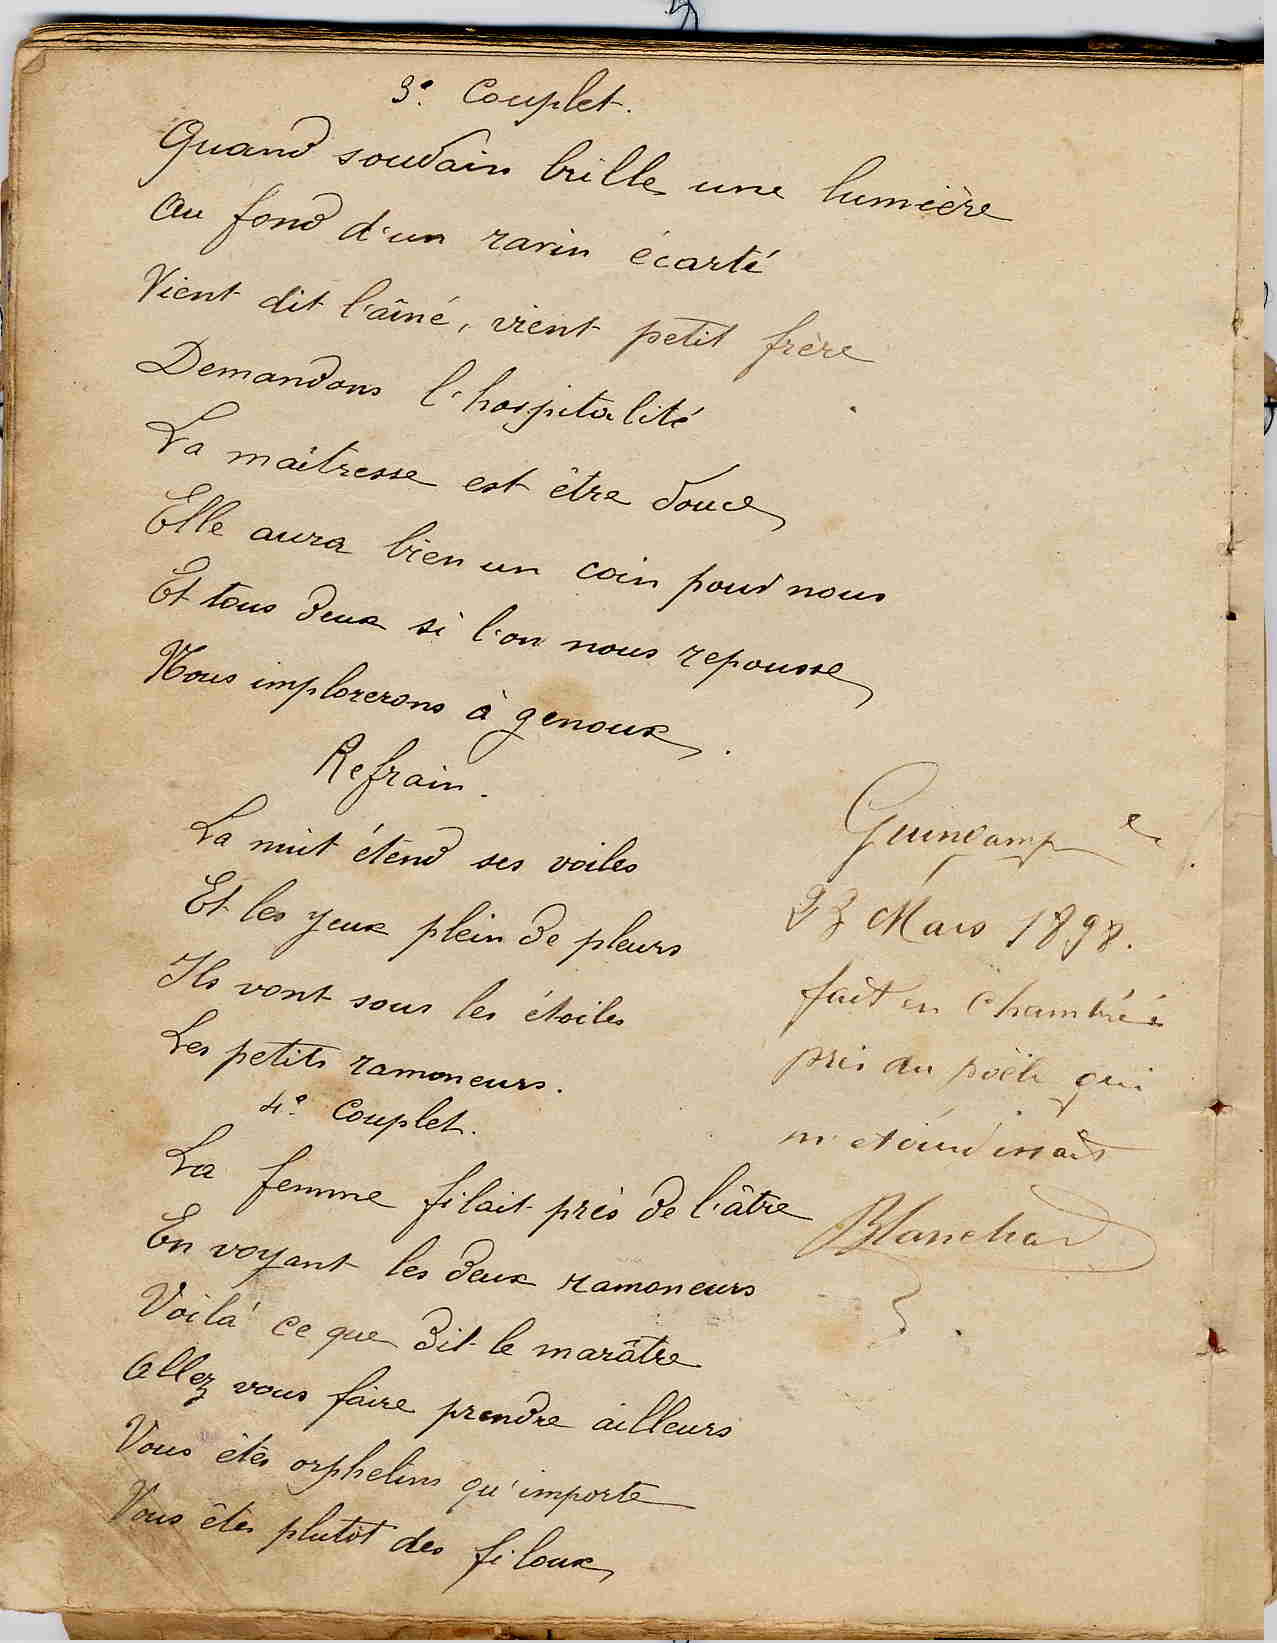 3e. Couplet.
Quand soudain brille une lumière
Au fond d'un ravin écarté
Vient dit l'aîné, vient petit frère
Demandons l'hospitalité
La maîtresse est être douce
Elle aura bien un coin pour nous
Et tous deux si l'on nous repousse
Nous implorerons à genoux.
Refrain.
La nuit étend ses voiles
Et les yeux plein de pleurs
Ils vont sous les étoiles
Les petits ramoneurs.
4e. Couplet.
La femme filait près de l'âtre
En voyant les deux ramoneurs
Voilà ce que dit le marâtre
Allez vous faire prendre ailleurs
Vous êtes orphelins qu'importe
Vous êtes plutôt des filoux
Guingamp le
23 Mars 1898.
fait en chambrée
près du poële qui
m'étourdissait
Blanchard